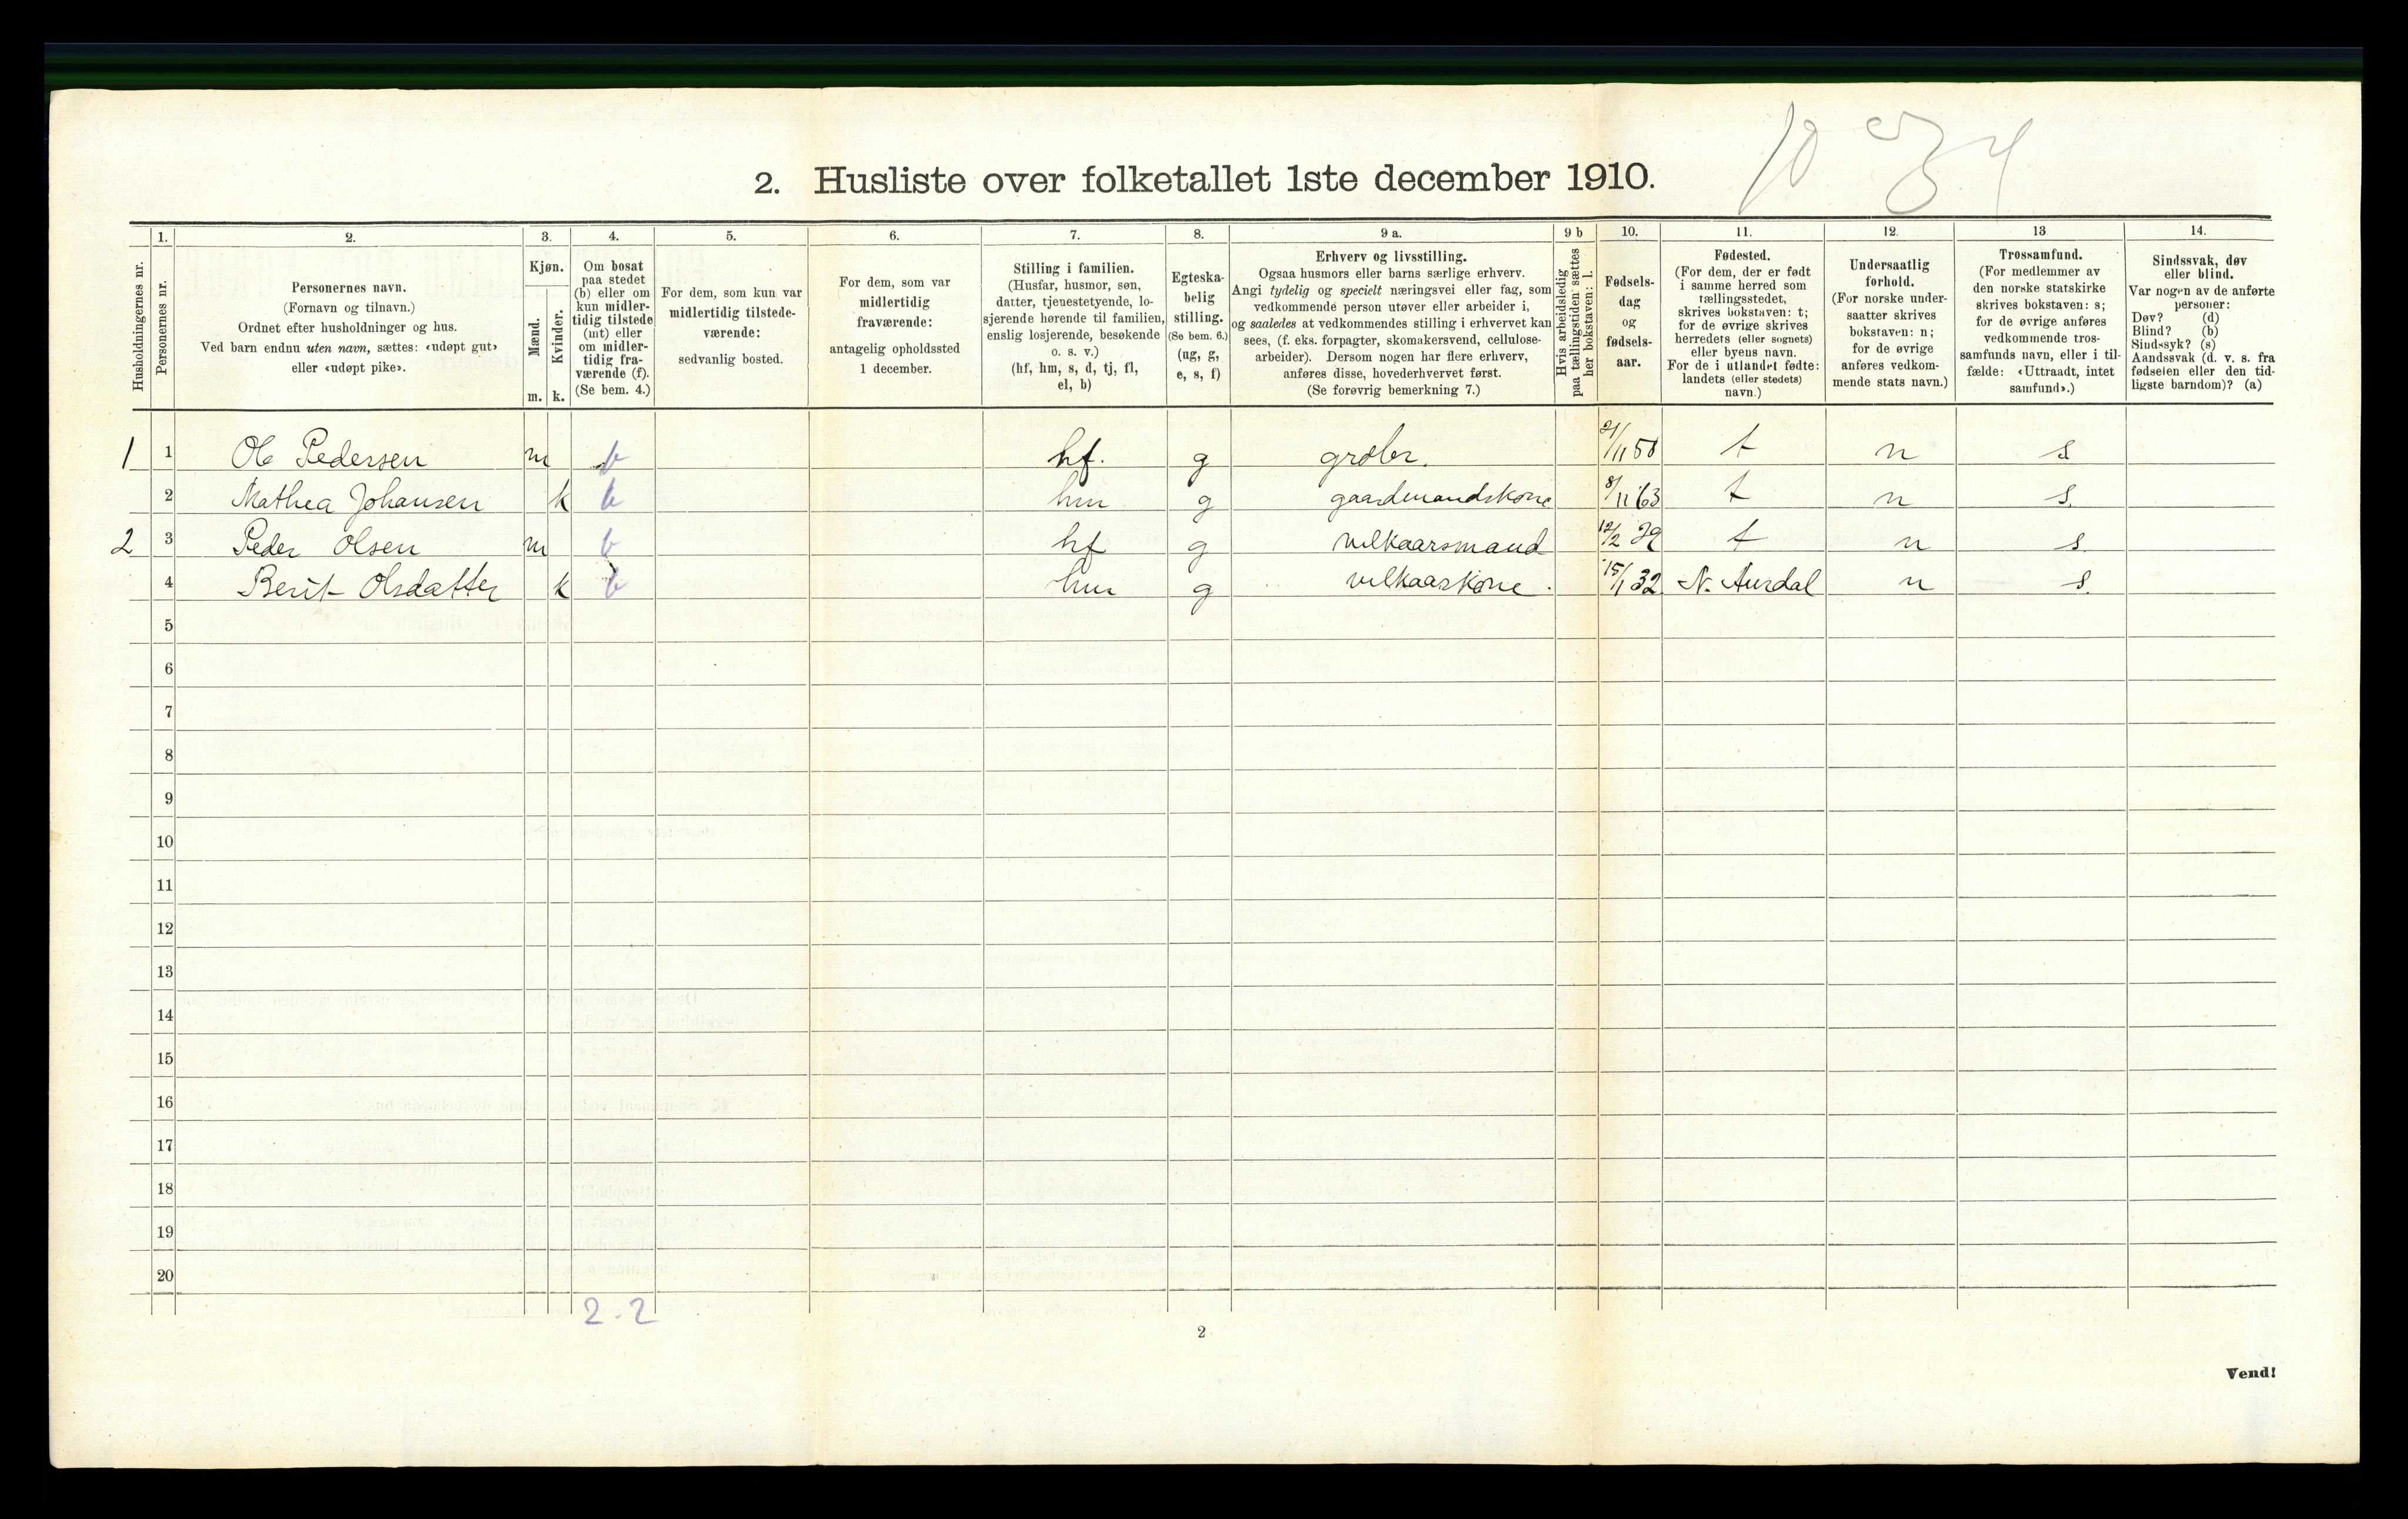 2. Husliste over folketallet 1ste december 1910.
1. 2. 3. 4. 5. 6. 7. 8. 9 a. 9 b 10. 11. 12. 13 14.
Husholdningernes nr.
Personernes nr.
Personernes navn.
(Fornavn og tilnavn.)
Ordnet efter husholdninger og hus.
Ved barn endnu uten navn, sættes: «udøpt gut»
eller «udøpt pike».
Kjøn.
Mænd.
Kvinder.
m. k.
Om bosat
paa stedet
(b) eller om
kun midler-
tidig tilstede
(mt) eller
om midler-
tidig fra-
værende (f).
(Se bem. 4.)
For dem, som kun var
midlertidig tilstede-
værende:
sedvanlig bosted.
For dem, som var
midlertidig
fraværende:
antagelig opholdssted
1 december.
Stilling i familien.
(Husfar, husmor, søn,
datter, tjenestetyende, lo-
sjerende hørende til familien,
enslig losjerende, besøkende
o. s. v.)
(hf, hm, s, d, tj, fl,
el, b)
Egteska-
belig
stilling.
(Se bem. 6.)
(ug, g,
e, s, f)
Erhverv og livsstilling.
Ogsaa husmors eller barns særlige erhverv.
Angi tydelig og specielt næringsvei eller fag, som
vedkommende person utøver eller arbeider i,
og saaledes at vedkommendes stilling i erhvervet kan
sees, (f. eks. forpagter, skomakersvend, cellulose-
arbeider). Dersom nogen har flere erhverv,
anføres disse, hovederhvervet først.
(Se forøvrig bemerkning 7.)
Hvis arbeidsledig
paa tællingstiden sættes
her bokstaven: l.
Fødsels-
dag
og
fødsels-
aar.
Fødested.
(For dem, der er født
i samme herred som
tællingsstedet,
skrives bokstaven: t;
for de øvrige skrives
herredets (eller sognets)
eller byens navn.
For de i utlandet fødte:
landets (eller stedets)
navn.)
Undersaatlig
forhold.
(For norske under-
saatter skrives
bokstaven: n;
for de øvrige
anføres vedkom-
mende stats navn.)
Trossamfund.
(For medlemmer av
den norske statskirke
skrives bokstaven: s;
for de øvrige anføres
vedkommende tros-
samfunds navn, eller i til-
fælde: «Uttraadt, intet
samfund».)
Sindssvak, døv
eller blind.
Var nogen av de anførte
personer:
Døv? (d)
Blind? (b)
Sindssyk? (s)
Aandssvak (d. v. s. fra
fødselen eller den tid-
ligste barndom)? (a)
1 1 Ole Pedersen m b hf. g grdbr. 21/11 50 t n s
2 Mathea Johansen k b hm g gaardmandskone 8/11 63 t n s.
2 3 Peder Olsen m b hf g velkaarsmand 12/2 29 t n s.
4 Berit Olsdatter k b hm g velkaarskone. 15/1 32 N. Aurdal n s.
5
6
7
8
9
10
11
12
13
14
15
16
17
18
19
20
2 . 2
2
Vend!